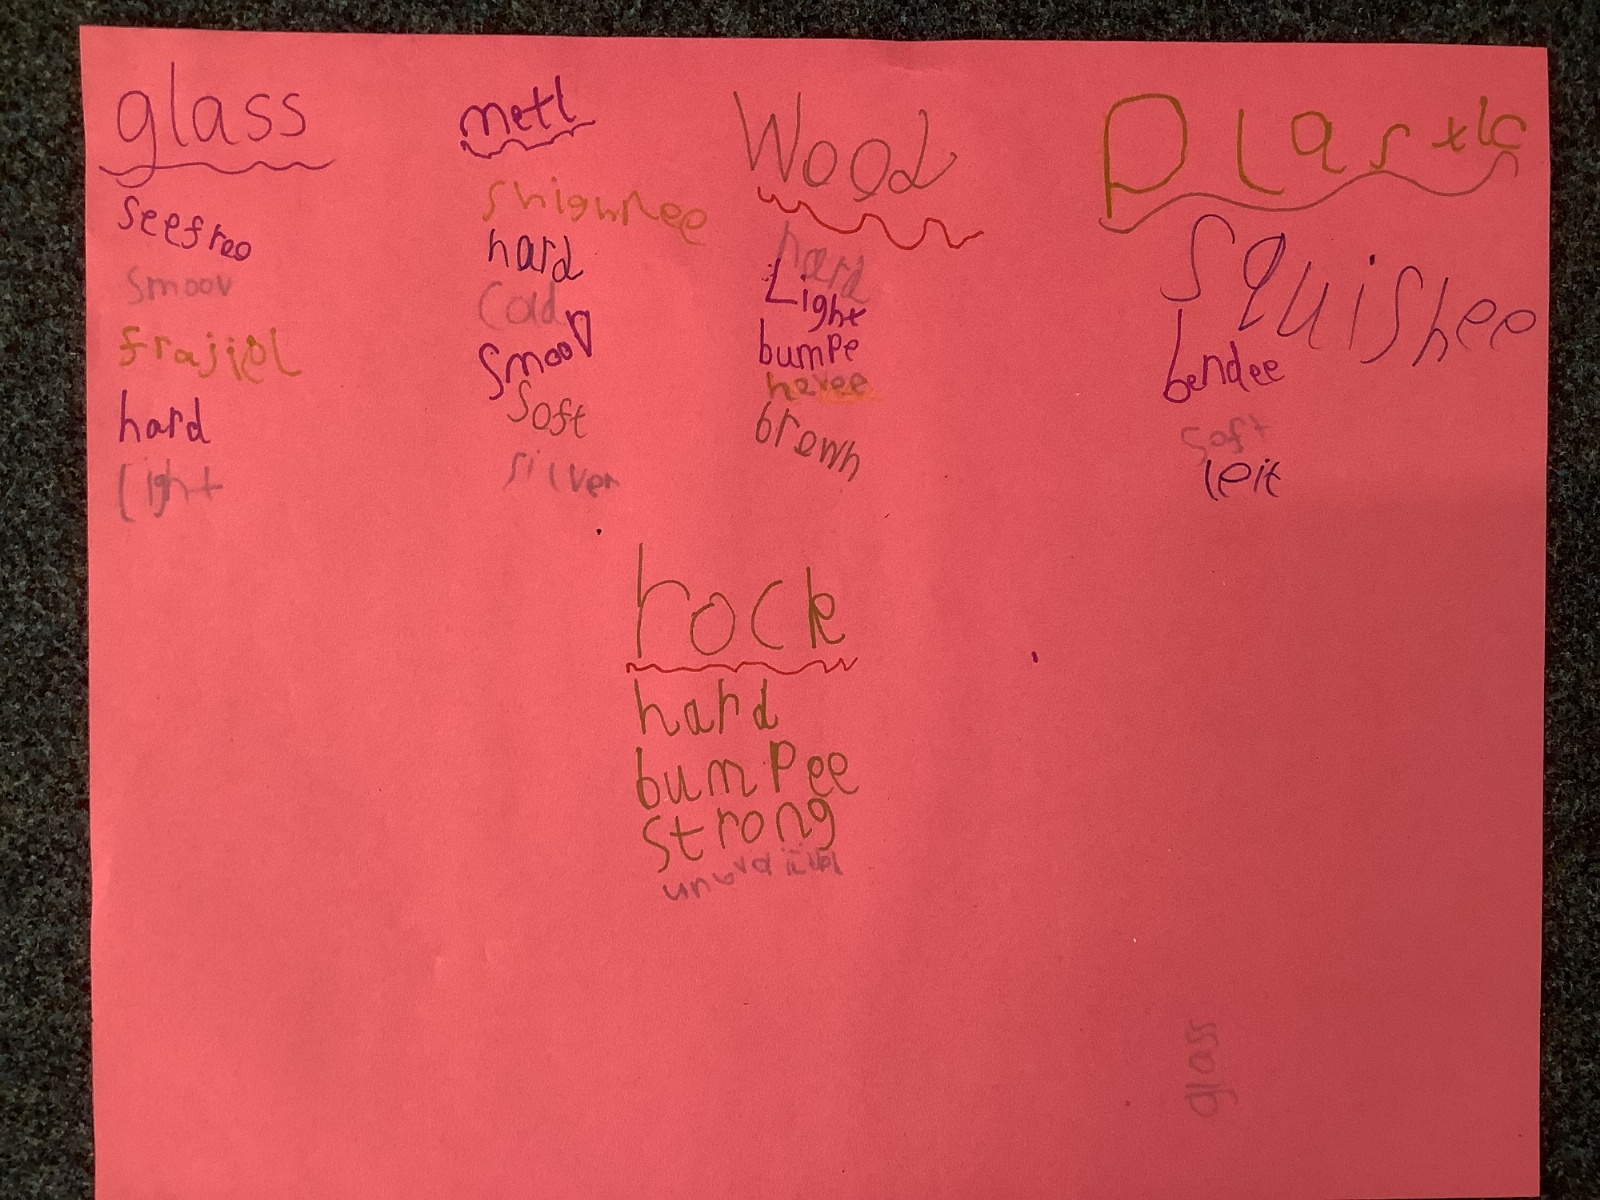 glass
seefroo
smoov
frajiel
hard
light
metl
shighnee
hard
Cold
smoov
Soft
silver
Wood
hard
Light
bumpe
hevee
brown
Plastic
Squishee
bendee
soft
leit
rock
hard
bumPee
strong
glass